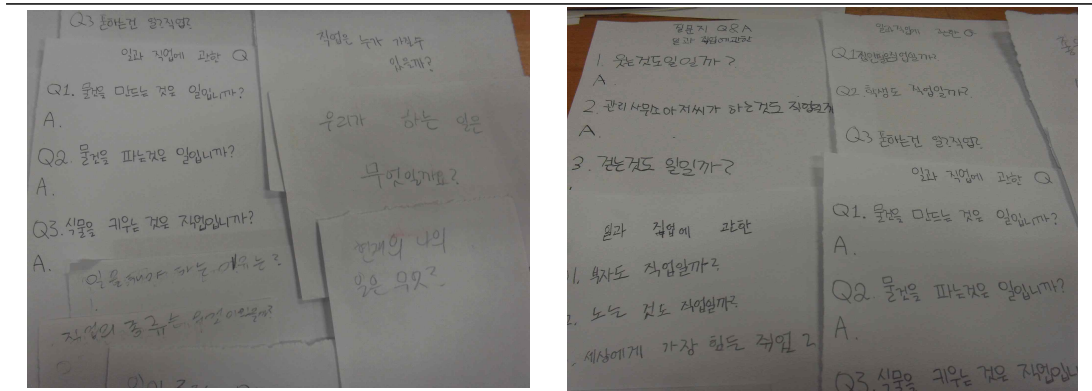 Q3 돈하는건 일?직업?
일과 직업에 관한 Q
Q1. 물건을 만드는 것은 일입니까?
A.
Q2. 물건을 파는것은 일입니까?
A.
Q3. 식물을 키우는 것은 직업입니까?
A.
직업은 누가 가질수
있을까?
우리가 하는 일은
무엇일까요?
현재의 나의
일은 무엇?
일을 해야 하는 이유는?
직업의 종류는
질문지 Q&A
일과 직업에관한
1. 웃는것도일일까?
A.
2. 관리사무소아저씨가 하는것도 직업일까
A.
3. 걷는것도 일일까?
일과 직업에 관한
1. 부자도 직업일까?
2. 노는 것도 직업일까?
세상에게 가장 힘든 직업?
일과직업에 관한Q
Q2 학생도 직업일까?
Q3 돈하는건 일?직업?
일과 직업에 관한 Q
Q1. 물건을 만드는 것은 일입니까?
A.
Q2. 물건을 파는것은 일입니까?
A.
Q3. 식물을 키우는 것은 직업입니